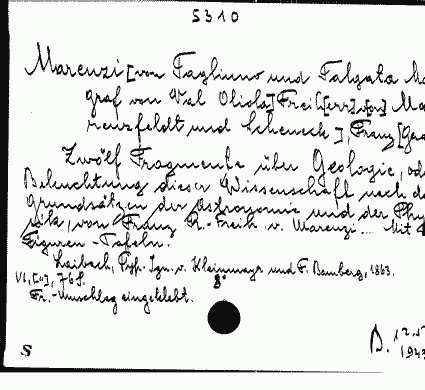 5310
Marenzi [von Tagliuno und Talgata Ma
graf von Val Oliola] Frei[herr] v[on] Ma
renzfeldt und Scheneck], Franz [Ga
Zwölf Fragmente über Geologie, od
Beleuchtung dieser Wissenschaft nach de
Grundsätzen der Astronomie und der Phy
sik, von Franz Freih. v. Marenzi... Mit 4
Figuren-Tafeln.
Laibach, Ign. v. Kleinmayr und F. Bamberg, 1863.
VI, 76 S. 8°
Fr.-Umschlag eingeklebt.
D. 12
1943
S